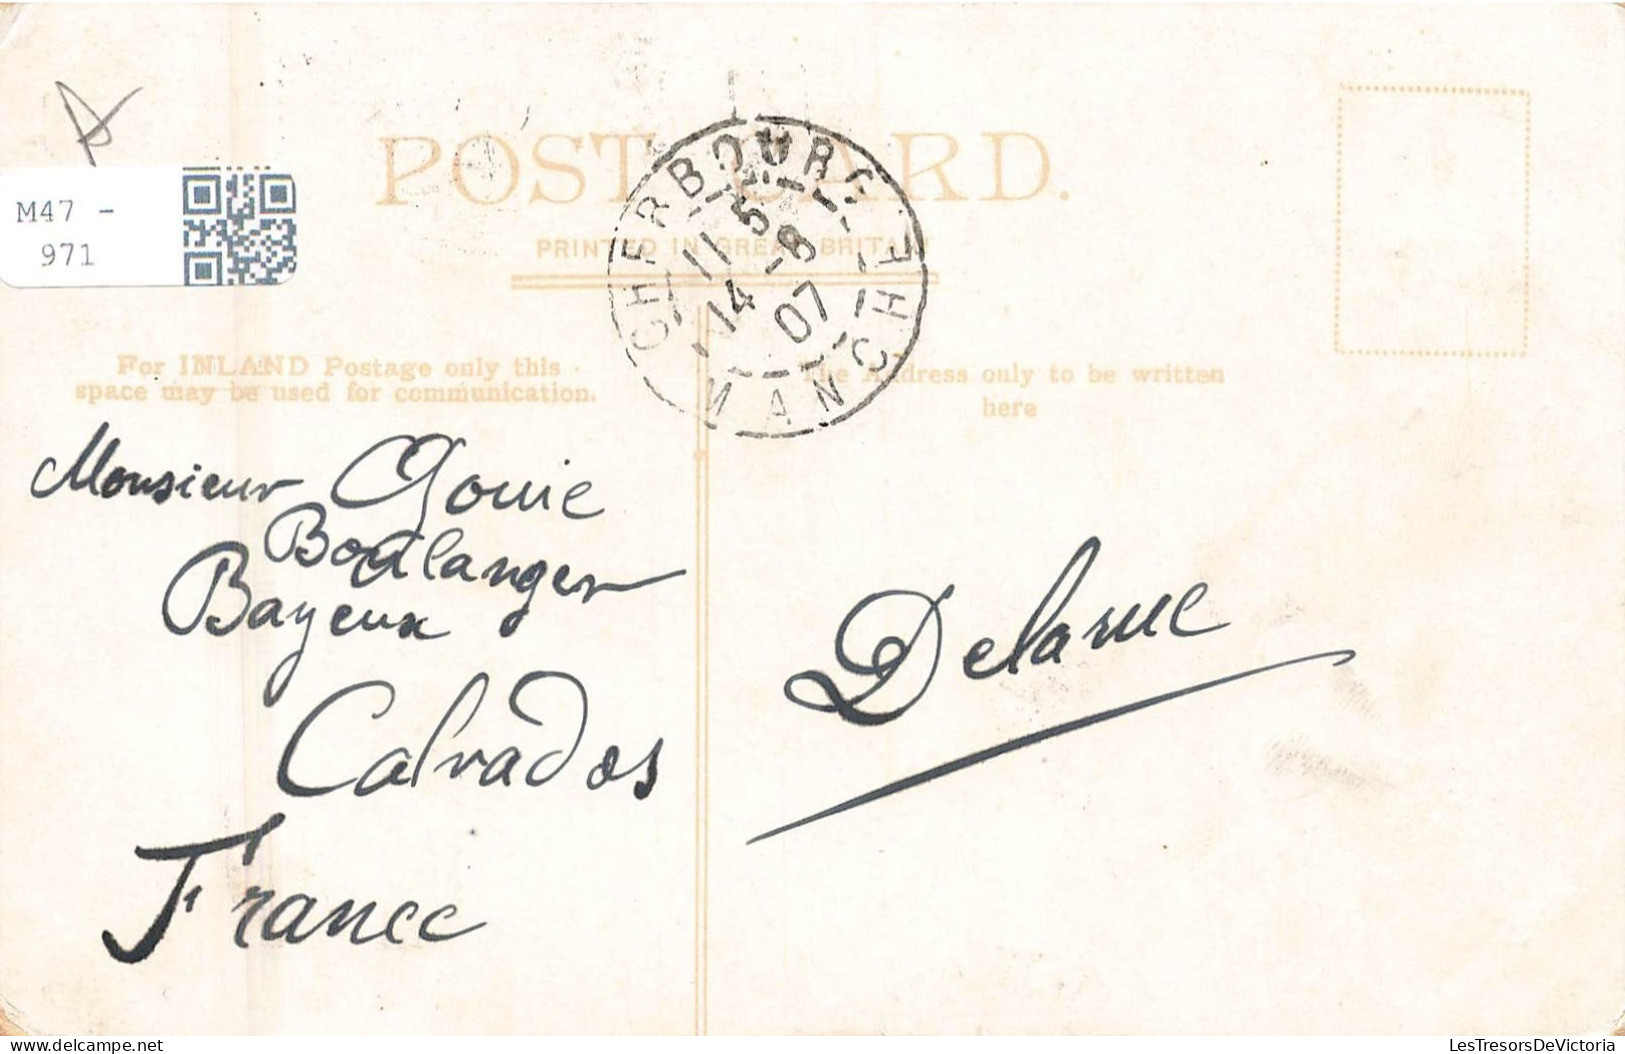 POST CARD.
PRINTED IN GREAT BRITAIN
M47 -
971
CHERBOURG
MANCHE
11 5
14 - 8
07
For INLAND Postage only this
space may be used for communication.
The Address only to be written
here
Monsieur Gouie
Boulanger
Bayeux
Calvados
France
Delarue
LesTresorsDeVictoria
delcampe.net